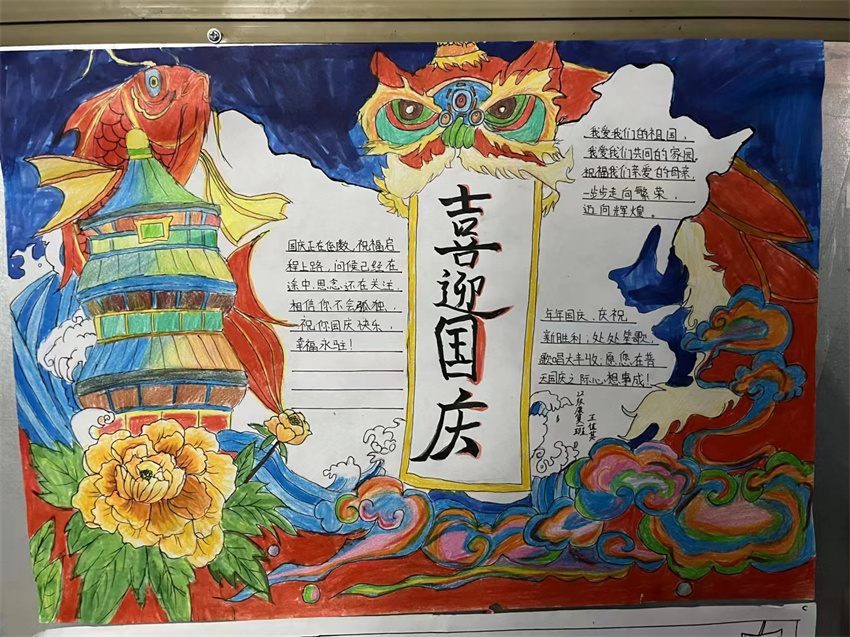 喜迎国庆
国庆正在倒数,祝福启
程上路,问候已经在
途中,思念还在关注,
相信你不会孤独,
祝你国庆快乐,
幸福永驻!
我爱我们的祖国,
我爱我们共同的家园,
祝福我们亲爱的母亲,
一步步走向繁荣,
迈向辉煌。
年年国庆,庆祝
新胜利,处处笙歌,
歌唱大丰收;愿您在普
天国庆之际心想事成!